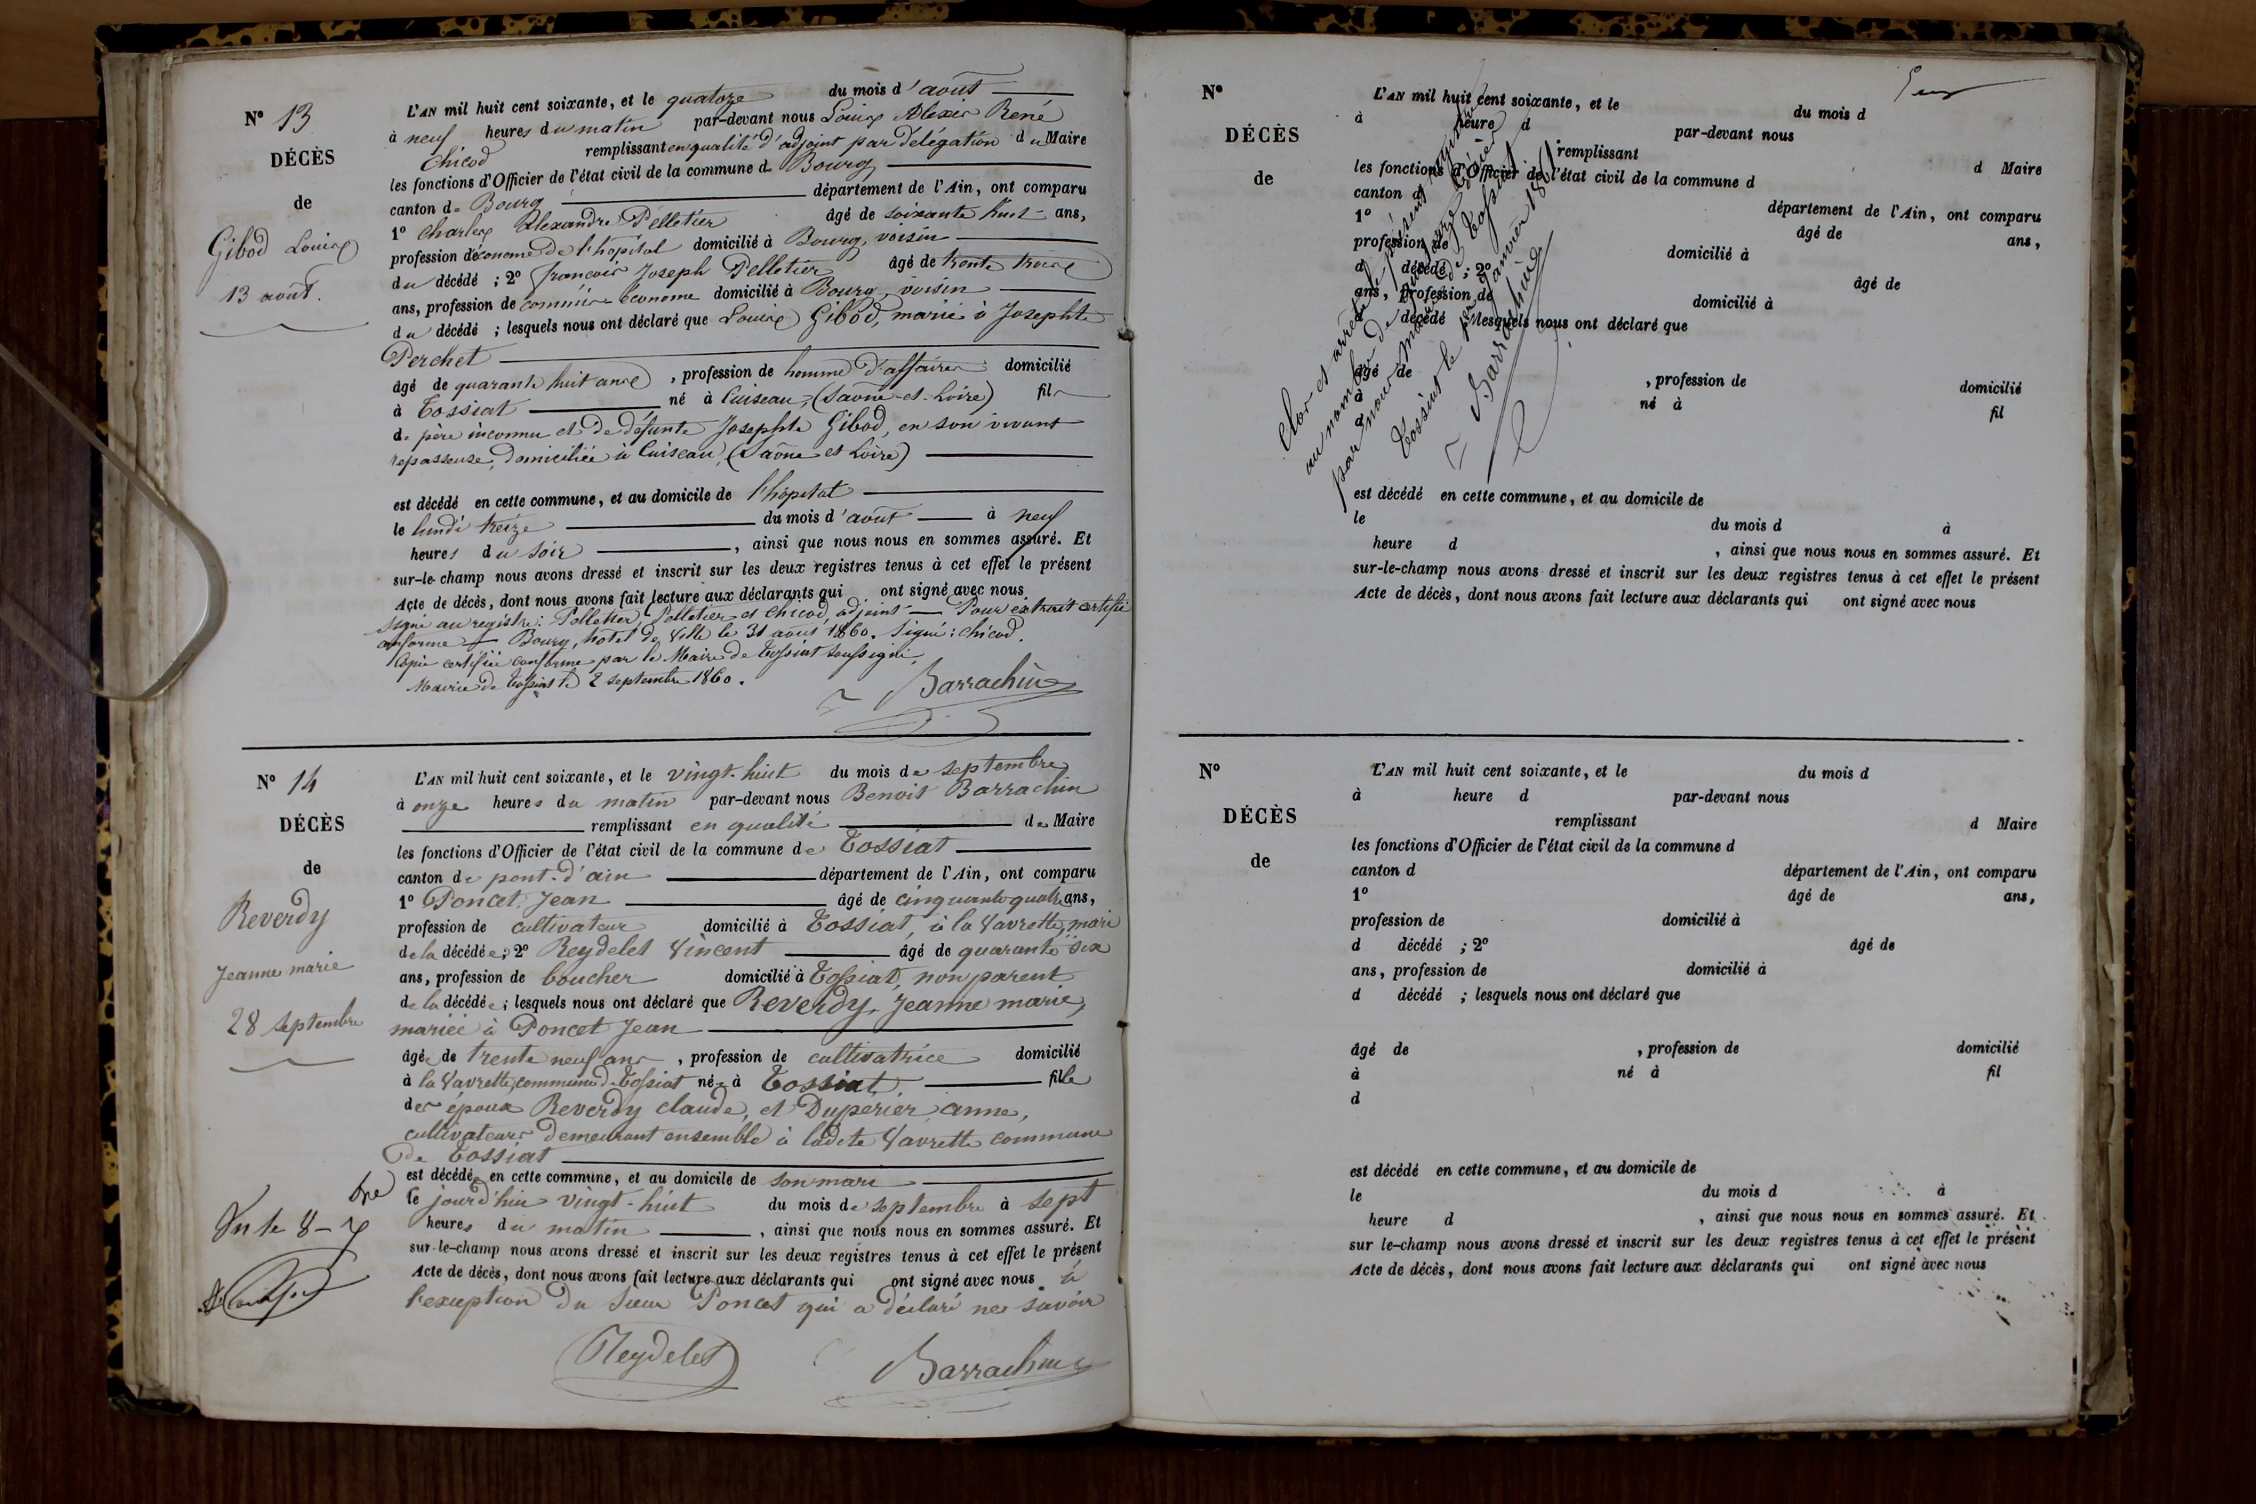 N° 13
DÉCÈS
de
Gibod Louis
13 août.
L'AN mil huit cent soixante, et le quatorze du mois d'août
à neuf heures du matin par-devant nous Louis Alexis René
Chicod remplissant en qualité d'adjoint par délégation du Maire
les fonctions d'Officier de l'état civil de la commune de Bourg
canton de Bourg département de l'Ain, ont comparu
1° Charles Alexandre Pelletier âgé de soixante huit ans,
profession d'économe de l'hôpital domicilié à Bourg, voisin
du décédé ; 2° françois Joseph Pelletier âgé de trente trois
ans, profession de commis économe domicilié à Bourg, voisin
du décédé ; lesquels nous ont déclaré que Louis Gibod, marié à Josephte
Perchet
âgé de quarante huit ans , profession de homme d'affaires domicilié
à Tossiat né à Cuiseau, (Saône-et-Loire) fils
de père inconnu et de défunte Josephte Gibod, en son vivant
repasseuse, domiciliée à Cuiseau, (Saône et Loire)
est décédé en cette commune, et au domicile de l'hôpital
le lundi treize du mois d'août à neuf
heures du soir , ainsi que nous nous en sommes assuré. Et
sur-le-champ nous avons dressé et inscrit sur les deux registres tenus à cet effet le présent
Acte de décès, dont nous avons fait lecture aux déclarants qui ont signé avec nous
Signé au registre: Pelletier, Pelletier et Chicod, adjoint — Pour extrait certifié
conforme Bourg, hotel de Ville le 31 août 1860. Signé : Chicod.
Copie certifiée conforme par le Maire de Tossiat soussigné,
Mairie de Tossiat le 2 septembre 1860.
Barrachin
N° 14
DÉCÈS
de
Reverdy
Jeanne marie
28 septembre
L'AN mil huit cent soixante, et le vingt-huit du mois de septembre
à onze heures du matin par-devant nous Benoit Barrachin
remplissant en qualité de Maire
les fonctions d'Officier de l'état civil de la commune de Tossiat
canton de pont-d'ain département de l'Ain, ont comparu
1° Poncet Jean âgé de cinquante quatre ans,
profession de cultivateur domicilié à Tossiat, à la Vavrette, mari
de la décédée ; 2° Reydelet Vincent âgé de quarante six
ans, profession de boucher domicilié à Tossiat, non parent
de la décédée ; lesquels nous ont déclaré que Reverdy, Jeanne marie,
mariée à Poncet Jean
âgée de trente neuf ans , profession de cultivatrice domicilié
à la Vavrette, commune de Tossiat née à Tossiat, fille
des époux Reverdy claude, et Duperier anne,
cultivateurs demeurant ensemble à ladite Vavrette commune
De Tossiat
est décédée en cette commune, et au domicile de son mari
le jourd'hui vingt-huit du mois de septembre à sept
heures du matin , ainsi que nous nous en sommes assuré. Et
sur-le-champ nous avons dressé et inscrit sur les deux registres tenus à cet effet le présent
Acte de décès, dont nous avons fait lecture aux déclarants qui ont signé avec nous à
l'exception du sieur Poncet qui a déclaré ne savoir
Reydelet
Barrachin
N°
DÉCÈS
de
L'AN mil huit cent soixante, et le du mois d
à heure d par-devant nous
remplissant d Maire
les fonctions d'Officier de l'état civil de la commune d
canton d département de l'Ain, ont comparu
1° âgé de ans,
profession de domicilié à
d décédé ; 2° âgé de
ans, profession de domicilié à
d décédé ; lesquels nous ont déclaré que
âgé de , profession de domicilié
à né à fil
d
est décédé en cette commune, et au domicile de
le du mois d à
heure d , ainsi que nous nous en sommes assuré. Et
sur-le-champ nous avons dressé et inscrit sur les deux registres tenus à cet effet le présent
Acte de décès, dont nous avons fait lecture aux déclarants qui ont signé avec nous
Clos et arrêté le présent registre
au nombre de quatorze décès
par nous Maire de Tossiat
Tossiat le 1er janvier 1861
Barrachin
N°
DÉCÈS
de
L'AN mil huit cent soixante, et le du mois d
à heure d par-devant nous
remplissant d Maire
les fonctions d'Officier de l'état civil de la commune d
canton d département de l'Ain, ont comparu
1° âgé de ans,
profession de domicilié à
d décédé ; 2° âgé de
ans, profession de domicilié à
d décédé ; lesquels nous ont déclaré que
âgé de , profession de domicilié
à né à fil
d
est décédé en cette commune, et au domicile de
le du mois d à
heure d , ainsi que nous nous en sommes assuré. Et
sur le-champ nous avons dressé et inscrit sur les deux registres tenus à cet effet le présent
Acte de décès, dont nous avons fait lecture aux déclarants qui ont signé avec nous